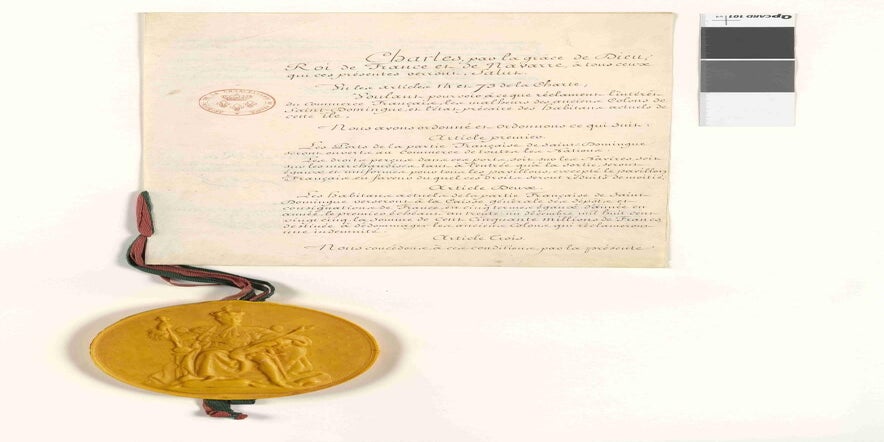 Charles, par la grâce de Dieu,
Roi de France et de Navarre, à tous ceux
qui ces présentes verront, Salut.
Vu les articles 14 et 73 de la Charte,
Voulant pourvoir à ce que réclament l'intérêt
du Commerce Français, les malheurs des anciens Colons de
Saint-Domingue, et l'état précaire des Habitans actuels de
cette île,
Nous avons ordonné et ordonnons ce qui suit:
Article premier.
Les Ports de la partie Française de Saint-Domingue
seront ouverts au Commerce de toutes les Nations.
Les droits perçus dans ces ports, soit sur les Navires, soit
sur les marchandises, tant à l'entrée qu'à la sortie, seront
égaux et uniformes pour tous les pavillons, excepté le pavillon
Français, en faveur duquel ces droits seront réduits de moitié.
Article Deux.
Les Habitans actuels de la partie Française de Saint-
Domingue verseront à la Caisse générale des dépôts et
consignations de France, en cinq termes égaux, d'année en
année, le premier échéant au trente un décembre mil huit cent
vingt cinq, la somme de Cent Cinquante Millions de Francs,
destinée à dédommager les anciens Colons qui réclameront
une indemnité.
Article Trois.
Nous concédons à ces conditions, par la présente
QPCARD 101 v4